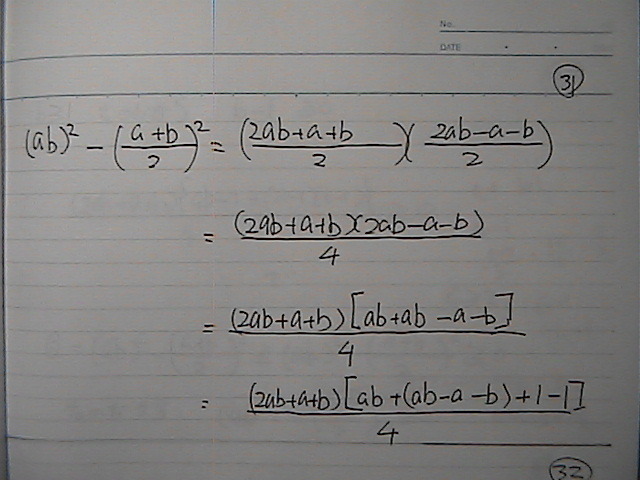 No.
DATE
31
(ab)² - ((a+b)/2)² = ((2ab+a+b)/2)((2ab-a-b)/2)
= (2ab+a+b)(2ab-a-b)/4
= (2ab+a+b)[ab+ab-a-b]/4
= (2ab+a+b)[ab+(ab-a-b)+1-1]/4
32